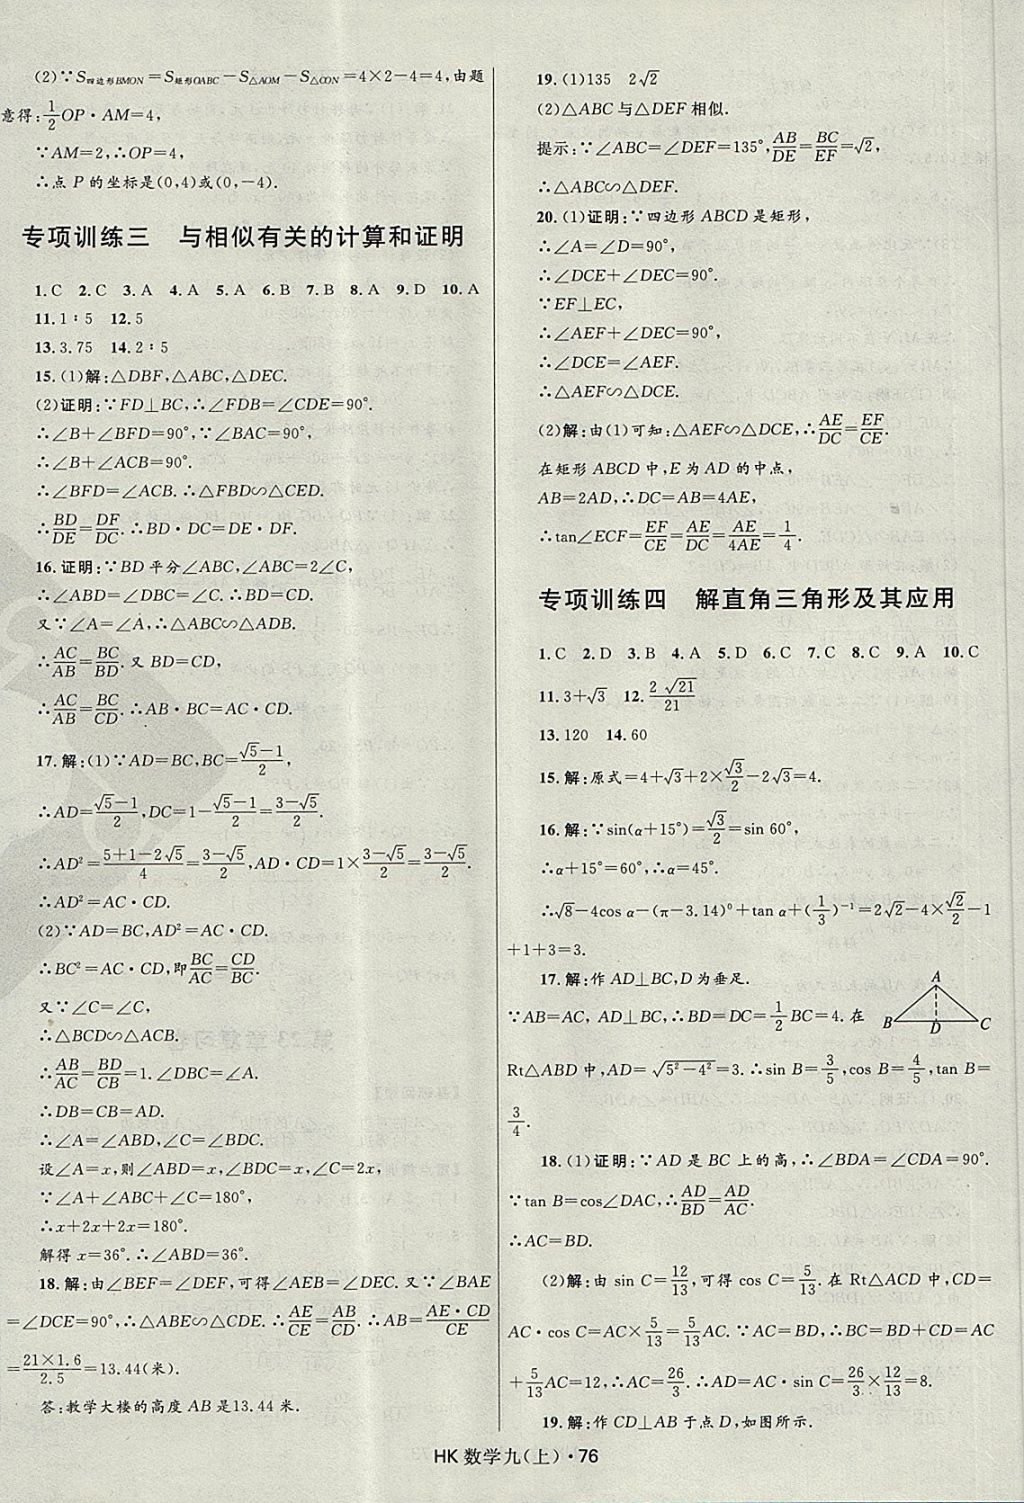 (2)∵S四边形BMON=S矩形OABC-S△AOM-S△CON=4×2-4=4,由题
意得:1/2 OP·AM=4,
∵AM=2,∴OP=4,
∴点 P 的坐标是(0,4)或(0,-4).
专项训练三 与相似有关的计算和证明
1.C 2.C 3.A 4.A 5.A 6.B 7.B 8.A 9.D 10.A
11.1∶5 12.5
13.3.75 14.2∶5
15.(1)解:△DBF,△ABC,△DEC.
(2)证明:∵FD⊥BC,∴∠FDB=∠CDE=90°.
∴∠B+∠BFD=90°,∵∠BAC=90°.
∴∠B+∠ACB=90°.
∴∠BFD=∠ACB.∴△FBD∽△CED.
∴BD/DE=DF/DC.∴BD·DC=DE·DF.
16.证明:∵BD 平分∠ABC,∠ABC=2∠C,
∴∠ABD=∠DBC=∠C.
又∵∠A=∠A,∴△ABC∽△ADB.
∴AC/AB=BC/BD.又 BD=CD,
∴AC/AB=BC/CD.∴AB·BC=AC·CD.
17.解:(1)∵AD=BC,BC=(√5-1)/2,
∴AD=(√5-1)/2,DC=1-(√5-1)/2=(3-√5)/2.
∴AD²=(5+1-2√5)/4=(3-√5)/2,AD·CD=1×(3-√5)/2=(3-√5)/2.
∴AD²=AC·CD.
(2)∵AD=BC,AD²=AC·CD.
∴BC²=AC·CD,即BC/AC=CD/BC.
又∵∠C=∠C,
∴△BCD∽△ACB.
∴AB/AC=BD/CB=1.∠DBC=∠A.
∴DB=CB=AD.
∴∠A=∠ABD,∠C=∠BDC.
设∠A=x,则∠ABD=x,∠BDC=x,∠C=2x,
∵∠A+∠ABC+∠C=180°,
∴x+2x+2x=180°.
解得 x=36°.∴∠ABD=36°.
18.解:由∠BEF=∠DEF,可得∠AEB=∠DEC.又∵∠BAE
=∠DCE=90°,∴△ABE∽△CDE.∴AE/CE=AB/CD.∴AB=AE·CD/CE
=21×1.6/2.5=13.44(米).
答:教学大楼的高度 AB 是13.44 米.
19.(1)135 2√2
(2)△ABC 与△DEF 相似.
提示:∵∠ABC=∠DEF=135°,AB/DE=BC/EF=√2,
∴△ABC∽△DEF.
20.(1)证明:∵四边形 ABCD 是矩形,
∴∠A=∠D=90°,
∴∠DCE+∠DEC=90°.
∵EF⊥EC,
∴∠AEF+∠DEC=90°,
∴∠DCE=∠AEF.
∴△AEF∽△DCE.
(2)解:由(1)可知:△AEF∽△DCE,∴AE/DC=EF/CE.
在矩形 ABCD 中,E 为 AD 的中点,
AB=2AD,∴DC=AB=4AE,
∴tan∠ECF=EF/CE=AE/DC=AE/4AE=1/4.
专项训练四 解直角三角形及其应用
1.C 2.D 3.B 4.A 5.D 6.C 7.C 8.C 9.A 10.C
11.3+√3 12.2√21/21
13.120 14.60
15.解:原式=4+√3+2×√3/2-2√3=4.
16.解:∵sin(α+15°)=√3/2=sin 60°,
∴α+15°=60°,∴α=45°.
∴√8-4cos α-(π-3.14)⁰+tan α+(1/3)⁻¹=2√2-4×√2/2-1
+1+3=3.
17.解:作 AD⊥BC,D 为垂足.
∵AB=AC, AD⊥BC,∴BD=DC=1/2BC=4.在
A
B D C
Rt△ABD 中,AD=√(5²-4²)=3.∴sin B=3/5,cos B=4/5,tan B=
3/4.
18.(1)证明:∵AD 是 BC 上的高,∴∠BDA=∠CDA=90°.
∵tan B=cos∠DAC,∴AD/BD=AD/AC.
∴AC=BD.
(2)解:由 sin C=12/13,可得 cos C=5/13.在 Rt△ACD 中,CD=
AC·cos C=AC×5/13=5/13AC.∵AC=BD,∴BC=BD+CD=AC
+5/13AC=12,∴AC=26/3.∴AD=AC·sin C=26/3×12/13=8.
19.解:作 CD⊥AB 于点 D,如图所示.
HK 数学九(上)·76